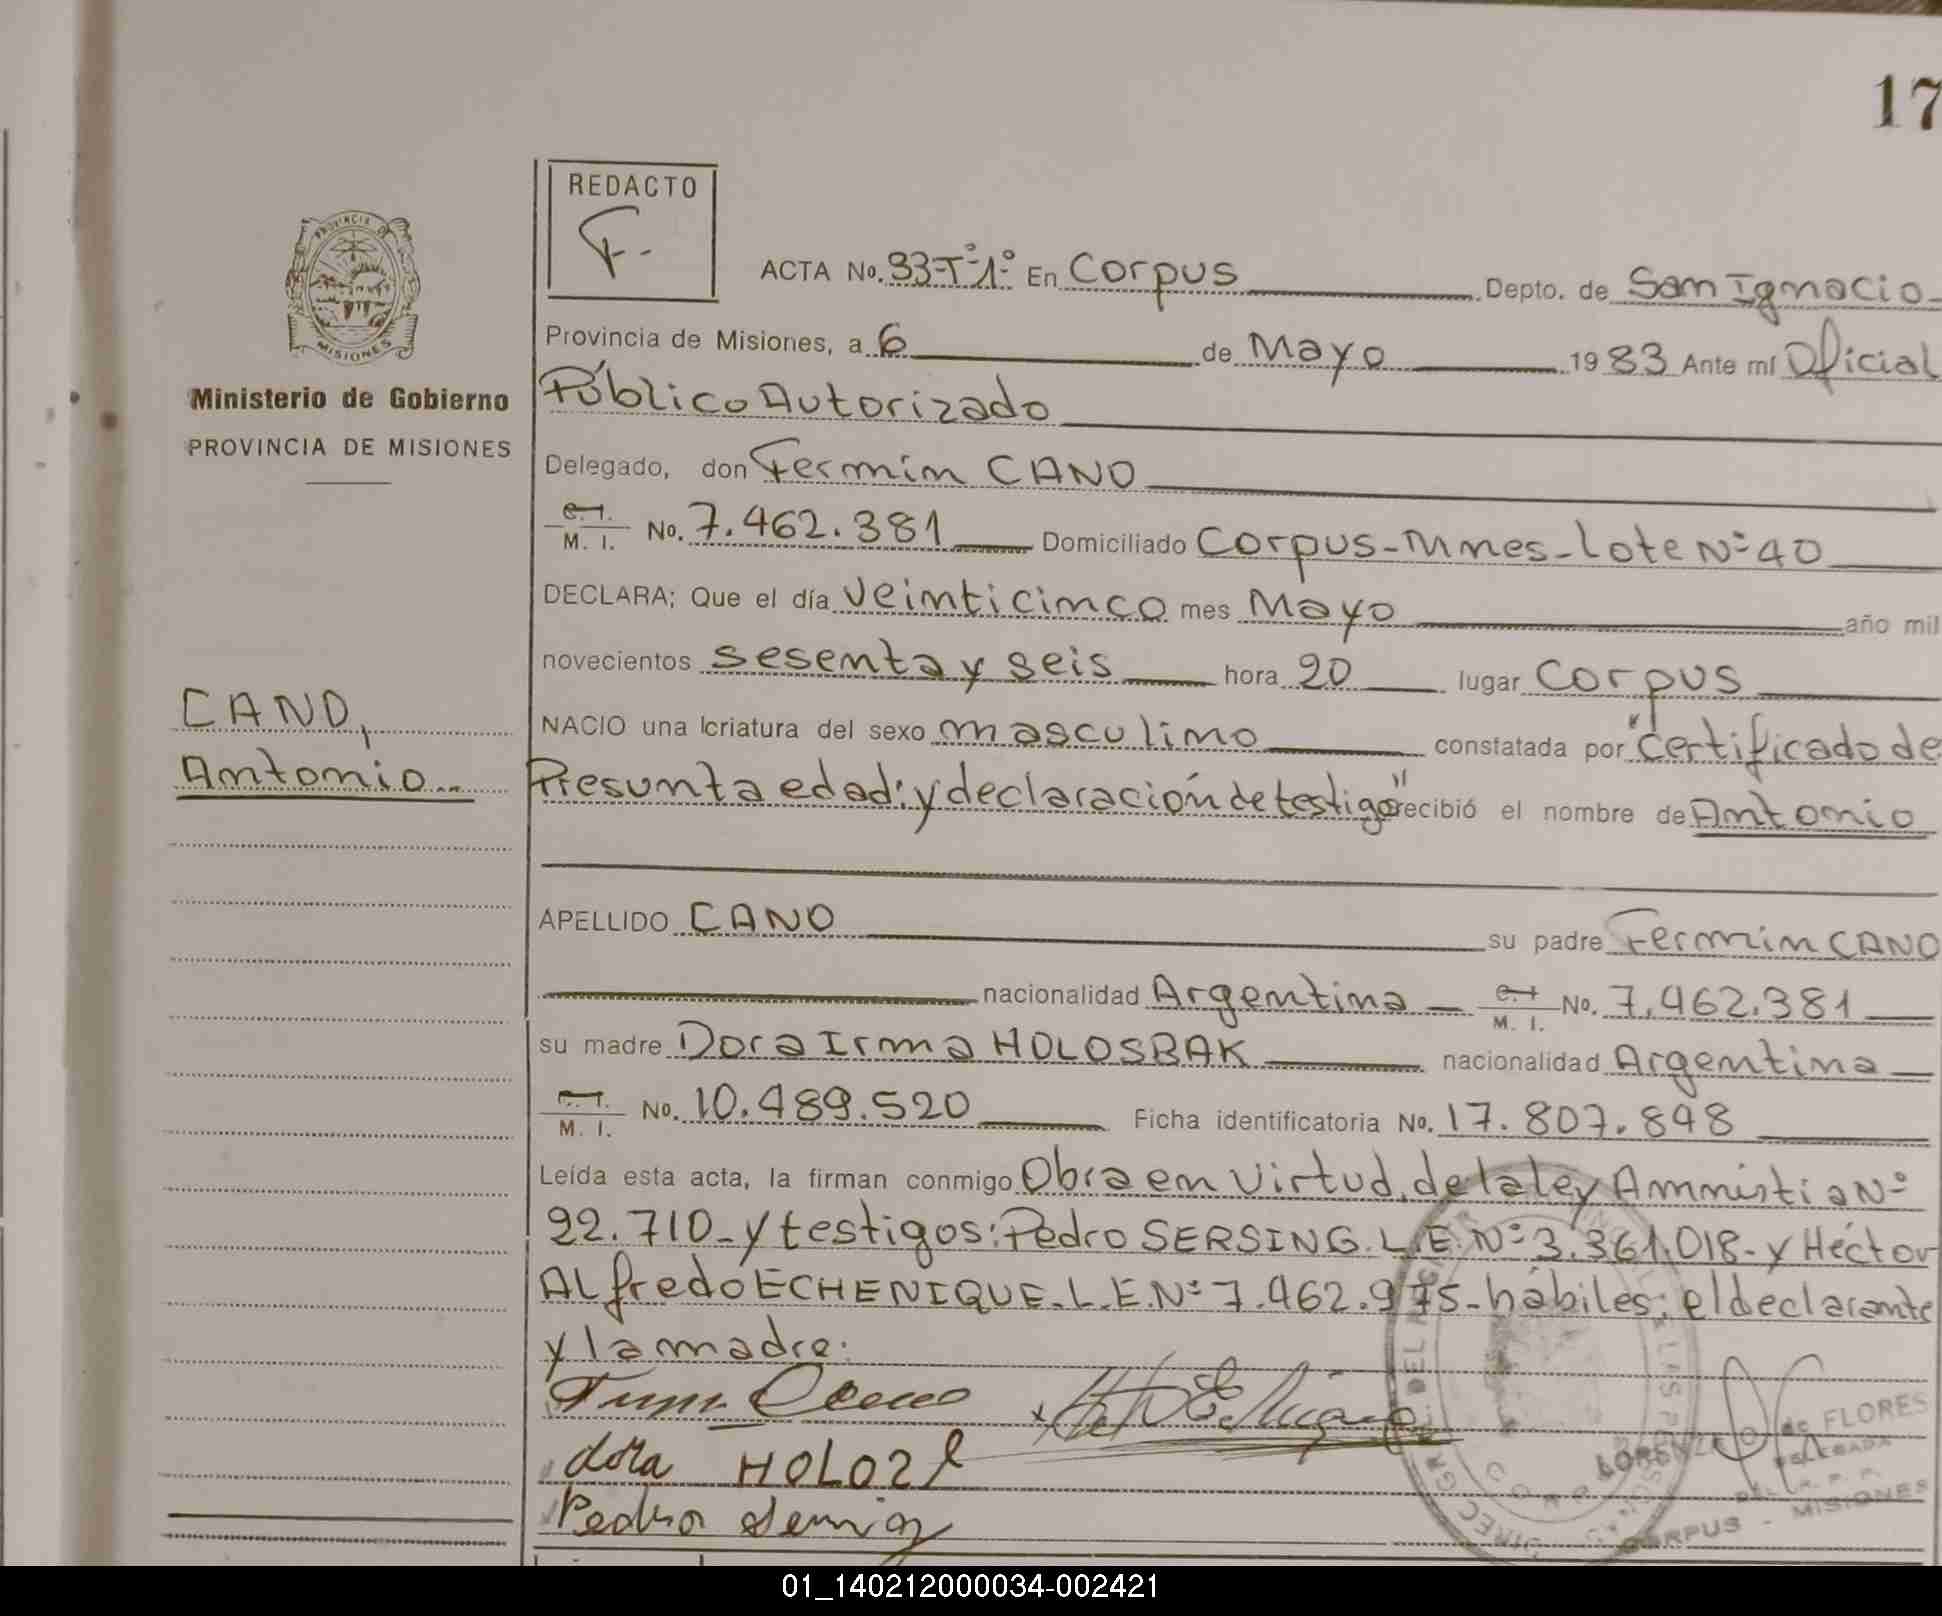 17
REDACTO
F.-
PROVINCIA DE
MISIONES
Ministerio de Gobierno
PROVINCIA DE MISIONES
CANO,
Antonio..
ACTA No. 33-Tº1º En Corpus Depto. de San Ignacio
Provincia de Misiones, a 6 de Mayo 1983 Ante mí Oficial
Público Autorizado
Delegado, don Fermin CANO
M. I. No. 7.462.381 Domiciliado Corpus-Mnes-Lote Nº 40
DECLARA; Que el día veinticinco mes Mayo año mil
novecientos sesenta y seis hora 20 lugar Corpus
NACIO una criatura del sexo masculino constatada por "Certificado de
Presunta edad: y declaración de testigo" recibió el nombre de Antonio
APELLIDO CANO su padre Fermin CANO
nacionalidad Argentina M. I. No. 7.462.381
su madre Dora Irma HOLOSBAK nacionalidad Argentina
M. I. No. 10.489.520 Ficha identificatoria No. 17.807.848
Leída esta acta, la firman conmigo Obra en Virtud, de la ley Ammistia Nº
22.710-y testigos: Pedro SERSING. L.E. Nº 3.361.018-y Héctor
ALfredo ECHENIQUE. L.E. Nº 7.462.975-hábiles; el declarante
y la madre.
dora HOLOZ
Pedro
LORENZA de FLORES
DELEGADA
CORPUS - MISIONES
01_140212000034-002421